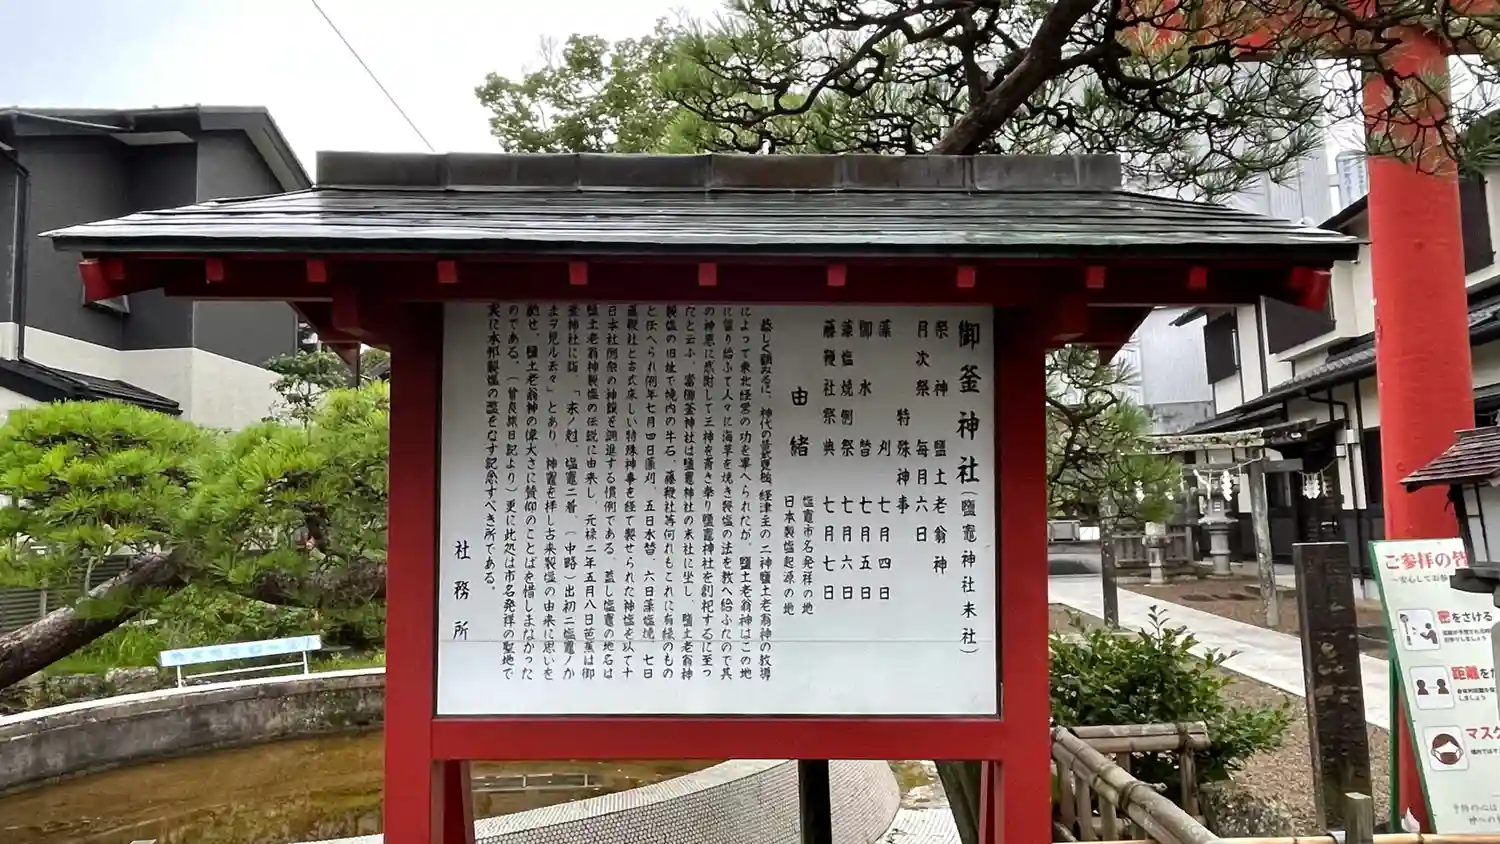 御釜神社(鹽竈神社末社)
祭神 鹽土老翁神
月次祭 毎月六日
特殊神事
藻刈 七月四日
御水替 七月五日
藻塩焼例祭 七月六日
藤鞭社祭典 七月七日
由緒
塩竈市名発祥の地
日本製塩起源の地
恭しく顧みるに、神代の昔武甕槌、経津主の二神鹽土老翁神の教導
によって東北経営の功を畢へられたが、鹽土老翁神はこの地
に留り給ふて人々に海草を焼き製塩の法を教へ給ふたので其
の神恩に感謝して三神を斎き奉り鹽竈神社を創祀するに至っ
たと云ふ、當御釜神社は鹽竈神社の末社に坐し、鹽土老翁神
製塩の旧址で境内の牛石、藤鞭社等何れもこれに有縁のもの
と伝へられ例年七月四日藻刈、五日水替、六日藻塩焼、七日
藤鞭社と古式床しい特殊神事を経て製せられた神塩を以て十
日本社例祭の神饌を調進する慣例である。蓋し塩竈の地名は
鹽土老翁神製塩の伝説に由来し、元禄二年五月八日芭蕉は御
釜神社に詣「末ノ尅、塩竈ニ着(中略)出初ニ塩竈ノか
まヲ見ル云々」とあり、神竈を拝し古来製塩の由来に思いを
馳せ、鹽土老翁神の偉大さに賛仰のことばを惜しまなかった
のである。(曽良旅日記より)更に此処は市名発祥の聖地で
実に本邦製塩の濫をなす記念すべき所である。
社務所
ご参拝の皆
~安心してお参
密をさける
距離をた
マスク